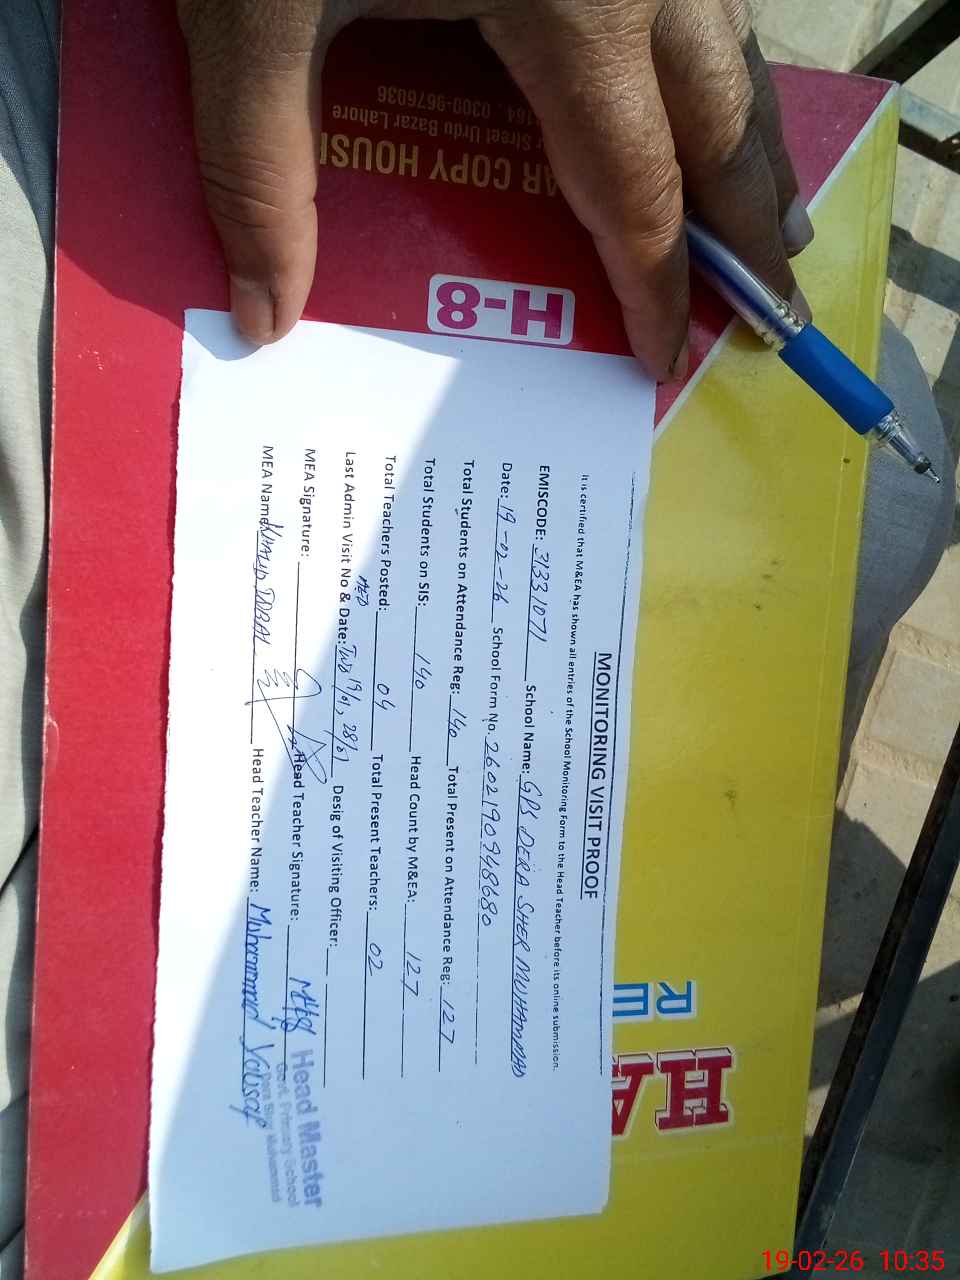 MONITORING VISIT PROOF
It is certified that M&EA has shown all entries of the School Monitoring Form to the Head Teacher before its online submission.
EMISCODE: 31331071 School Name: GPS DERA SHER MUHAMMAD
Date: 19-02-26 School Form No. 2602190948680
Total Students on Attendance Reg: 140 Total Present on Attendance Reg: 127
Total Students on SIS: 140 Head Count by M&EA: 127
Total Teachers Posted: 04 Total Present Teachers: 02
Last Admin Visit No & Date: Two 19/01, 28/01 Desig of Visiting Officer:
MEA Signature: Head Teacher Signature:
MEA Name: KHALID IQBAL Head Teacher Name: Muhammad Yousaf
Head Master
Govt. Primary School
Dera Sher Muhammad
H-8
AR COPY HOUS
Street Urdu Bazar Lahore
164, 0300-9676036
HA
R
19-02-26 10:35